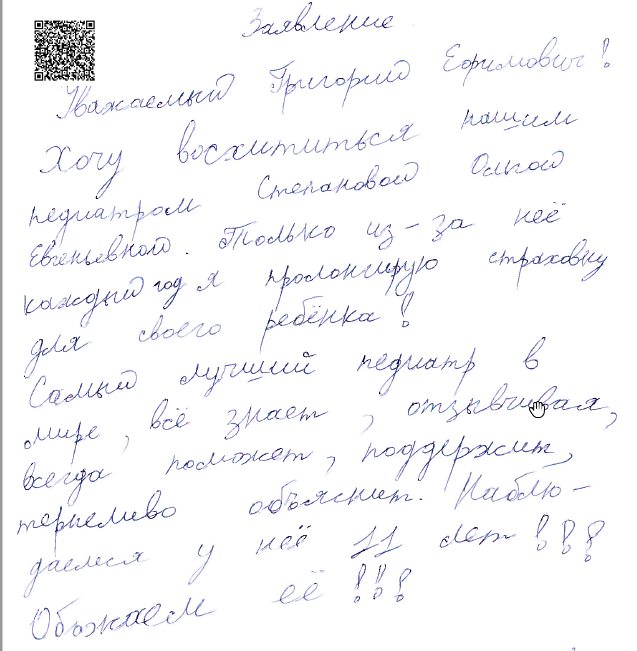 Заявление
Уважаемый Григорий Ефимович!
Хочу восхититься нашим
педиатром Степановой Ольгой
Евгеньевной. Только из-за неё
каждый год я пролонгирую страховку
для своего ребёнка!
Самый лучший педиатр в
мире, всё знает, отзывчивая,
всегда поможет, поддержит,
терпеливо объяснит. Наблю-
даемся у неё 11 лет!!!
Обожаем её!!!